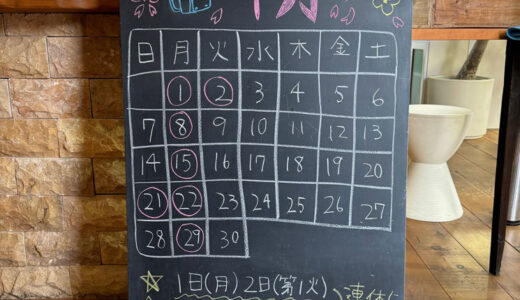 日 月 火 水 木 金 土
1 2 3 4 5 6
7 8 9 10 11 12 13
14 15 16 17 18 19 20
21 22 23 24 25 26 27
28 29 30
☆ 1日(月) 2日(第1火)
連休に